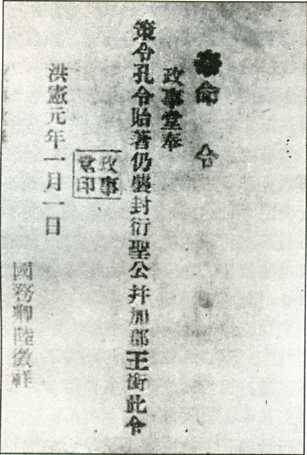 命令
政事堂奉
策令孔令貽著仍襲封衍聖公并加郡王銜此令
政事
堂印
洪憲元年一月一日
國務卿陸徵祥